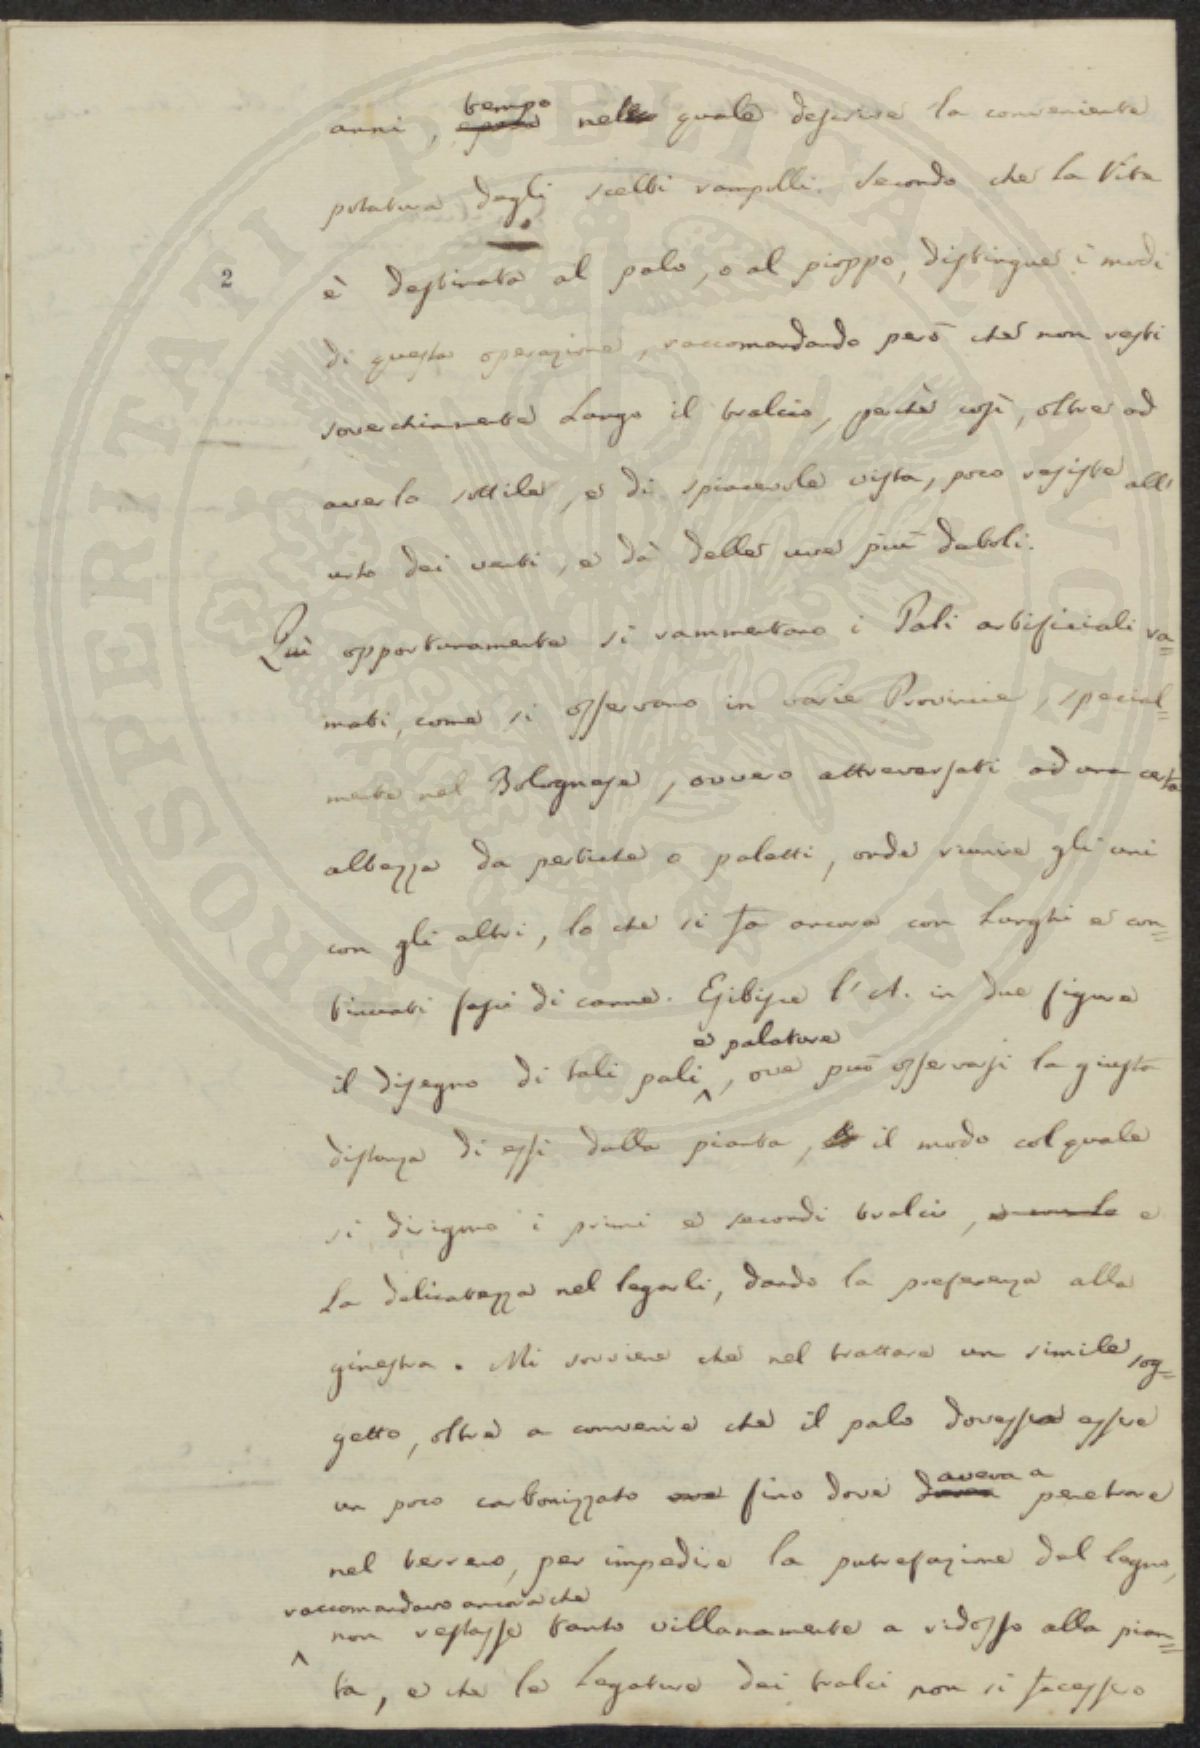 tempo
anni, epoca nella quale descrive la conveniente
potatura dagli scelti rampolli. Secondo che la Vite
2
è destinata al palo, o al pioppo, distingue i modi
di questa operazione, raccomandando però che non resti
soverchiamente Lungo il tralcio, perchè così, oltre ad
averlo sottile, e di spiacevole vista, poco resiste all'
urto dei venti, e dà delle uve più deboli.
Quì opportunamente si rammentano i Pali artificiali ra=
mati, come si osservano in varie Provincie, special=
mente nel Bolognese, ovvero attraversati ad una certa
altezza da pertiche o paletti, onde riunire gli uni
con gli altri, lo che si fa ancora con Lunghi e con=
tinuati fasci di canne. Esibisce l'A. in due figure
e palature
il disegno di tali pali ^, ove può osservarsi la giusta
distanza di essi dalla pianta, il modo col quale
si dirigono i primi e secondi tralci, e
La delicatezza nel legarli, dando la preferenza alla
ginestra. Mi sovviene che nel trattare un simile sog=
getto, oltre a convenire che il palo dovesse essere
avera a
un poco carbonizzato ove fino dove dovea penetrare
nel terreno, per impedire la putrefazione del legno,
raccomandavo ancora che
^ non restasse tanto villanamente a ridosso alla pian=
ta, e che le Legature dei tralci non si facessero
PROSPERITATI PUBLICAE PROVIDENDAE